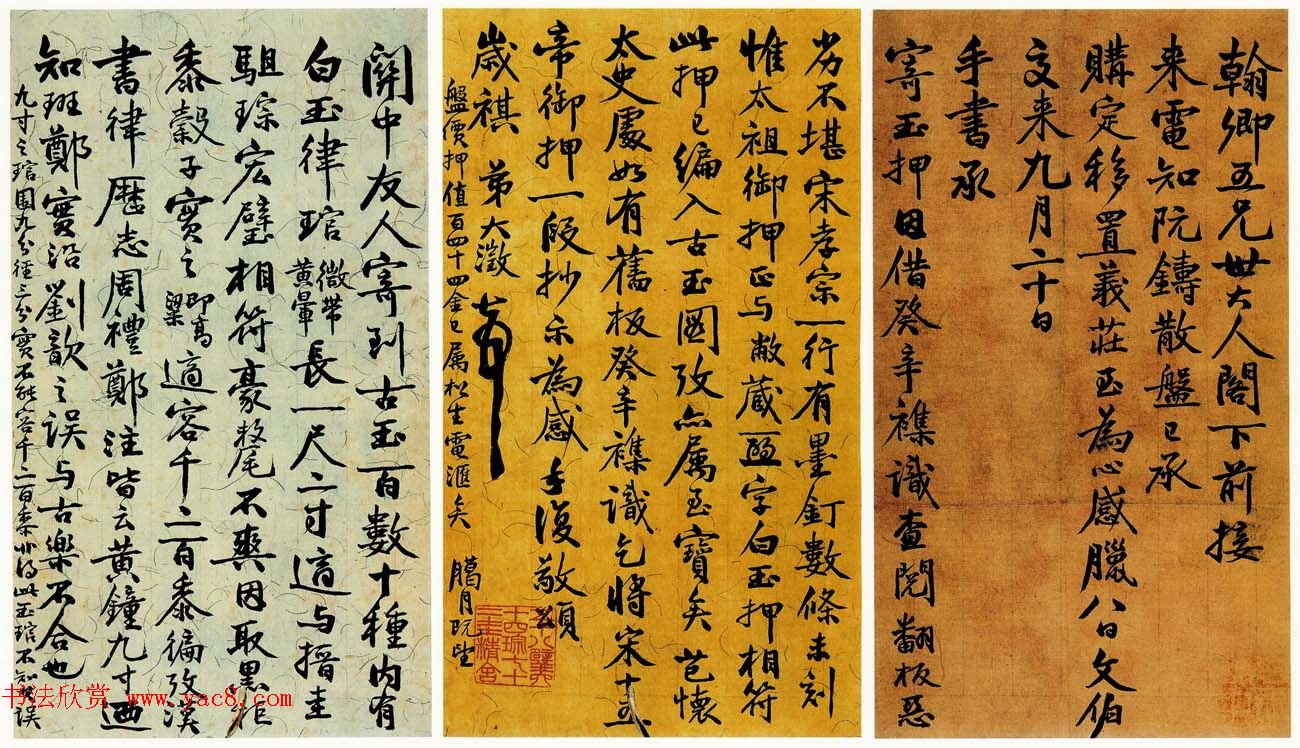 翰卿五兄世大人閣下前接
来電知阮鑄散盤已承
購定移置義莊至為心感臘八日文伯
交来九月二十日
手書承
寄玉押因借癸辛襍識查閱翻板惡
劣不堪宋孝宗一行有墨釘數條未刻
惟太祖御押正与敝藏字白玉押相符
此押已編入古玉圖攷亦属至寶矣芑懷
太史處如有舊板癸辛襍識乞將宋十五
帝御押一段抄示為感手復敬頌
歲祺 弟大澂
臘月既望
盤價押值百四十四金已属松生電滙矣
關中友人寄到古玉百數十種内有
白玉律琯微帶黄暈長一尺二寸適与搢圭
駔琮宏璧相符豪氂不爽因取黑秬
黍穀子實之即高粱適容千二百黍徧攷漢
書律歷志周禮鄭注皆云黄鐘九寸迺
知班鄭實沿劉歆之誤与古樂不合也
九寸之琯圍九分徑三分實不能容千二百黍非得此玉琯不知其誤
书法欣赏 www.yac8.com